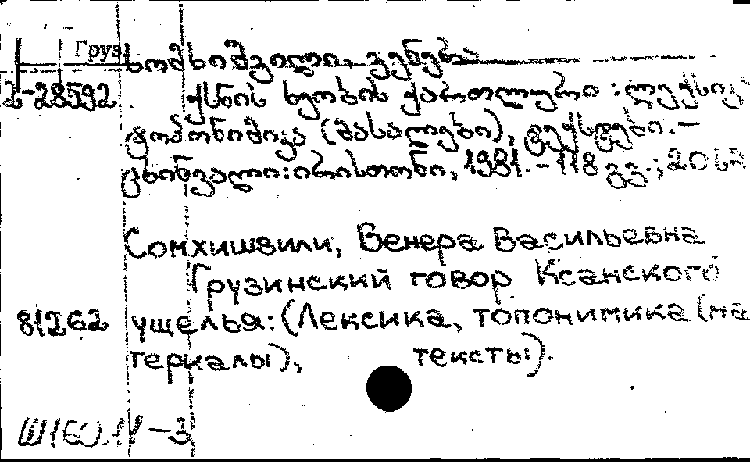 Груз.
სომხიშვილი, ვენერა
2-28592 ქსნის ხეობის ქართლური : ლექსიკა
ტოპონიმიკა (მასალები), ტექსტები. –
ცხინვალი: ირისთონი, 1981. – 118 გვ.; 20
Сомхишвили, Венера Васильевна
Грузинский говор Ксанского
81262 ущелья: (Лексика, топонимика (ма
териалы), тексты).
Ш160.11-3